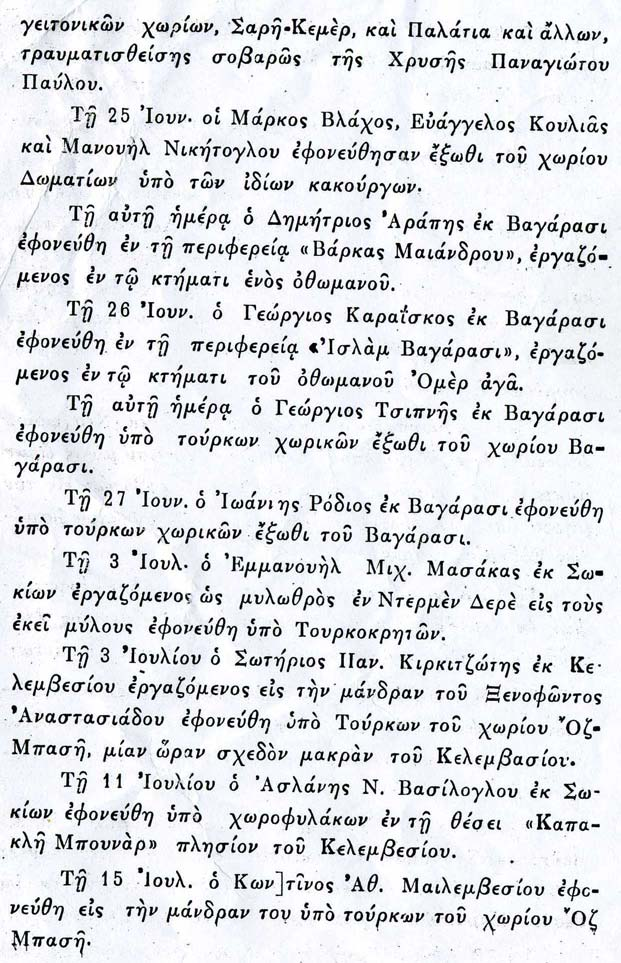 γειτονικῶν χωρίων, Σαρῆ-Κεμὲρ, καὶ Παλάτια καὶ ἄλλων,
τραυματισθείσης σοβαρῶς τῆς Χρυσῆς Παναγιώτου
Παύλου.
Τῇ 25 Ἰουν. οἱ Μάρκος Βλάχος, Εὐάγγελος Κουλιᾶς
καὶ Μανουὴλ Νικήτογλου ἐφονεύθησαν ἔξωθι τοῦ χωρίου
Δωματίων ὑπὸ τῶν ἰδίων κακούργων.
Τῇ αὐτῇ ἡμέρᾳ ὁ Δημήτριος Ἀράπης ἐκ Βαγάρασι
ἐφονεύθη ἐν τῇ περιφερείᾳ «Βάρκας Μαιάνδρου», ἐργαζό-
μενος ἐν τῷ κτήματι ἑνὸς ὀθωμανοῦ.
Τῇ 26 Ἰουν. ὁ Γεώργιος Καραΐσκος ἐκ Βαγάρασι
ἐφονεύθη ἐν τῇ περιφερείᾳ «Ἰσλὰμ Βαγάρασι», ἐργαζό-
μενος ἐν τῷ κτήματι τοῦ ὀθωμανοῦ Ὀμὲρ ἀγᾶ.
Τῇ αὐτῇ ἡμέρᾳ ὁ Γεώργιος Τσιπνῆς ἐκ Βαγάρασι
ἐφονεύθη ὑπὸ τούρκων χωρικῶν ἔξωθι τοῦ χωρίου Βα-
γάρασι.
Τῇ 27 Ἰουν. ὁ Ἰωάννης Ρόδιος ἐκ Βαγάρασι ἐφονεύθη
ὑπὸ τούρκων χωρικῶν ἔξωθι τοῦ Βαγάρασι.
Τῇ 3 Ἰουλ. ὁ Ἐμμανουὴλ Μιχ. Μασάκας ἐκ Σω-
κίων ἐργαζόμενος ὡς μυλωθρὸς ἐν Ντερμὲν Δερὲ εἰς τοὺς
ἐκεῖ μύλους ἐφονεύθη ὑπὸ Τουρκοκρητῶν.
Τῇ 3 Ἰουλίου ὁ Σωτήριος Παν. Κιρκιτζώτης ἐκ Κε-
λεμβεσίου ἐργαζόμενος εἰς τὴν μάνδραν τοῦ Ξενοφῶντος
Ἀναστασιάδου ἐφονεύθη ὑπὸ Τούρκων τοῦ χωρίου Ὄζ-
Μπασῆ, μίαν ὥραν σχεδὸν μακρὰν τοῦ Κελεμβασίου.
Τῇ 11 Ἰουλίου ὁ Ἀσλάνης Ν. Βασίλογλου ἐκ Σω-
κίων ἐφονεύθη ὑπὸ χωροφυλάκων ἐν τῇ θέσει «Καπα-
κλῆ Μπουνὰρ» πλησίον τοῦ Κελεμβεσίου.
Τῇ 15 Ἰουλ. ὁ Κων]τῖνος Ἀθ. Μαιλεμβεσίου ἐφο-
νεύθη εἰς τὴν μάνδραν του ὑπὸ τούρκων τοῦ χωρίου Ὄζ
Μπασῆ.